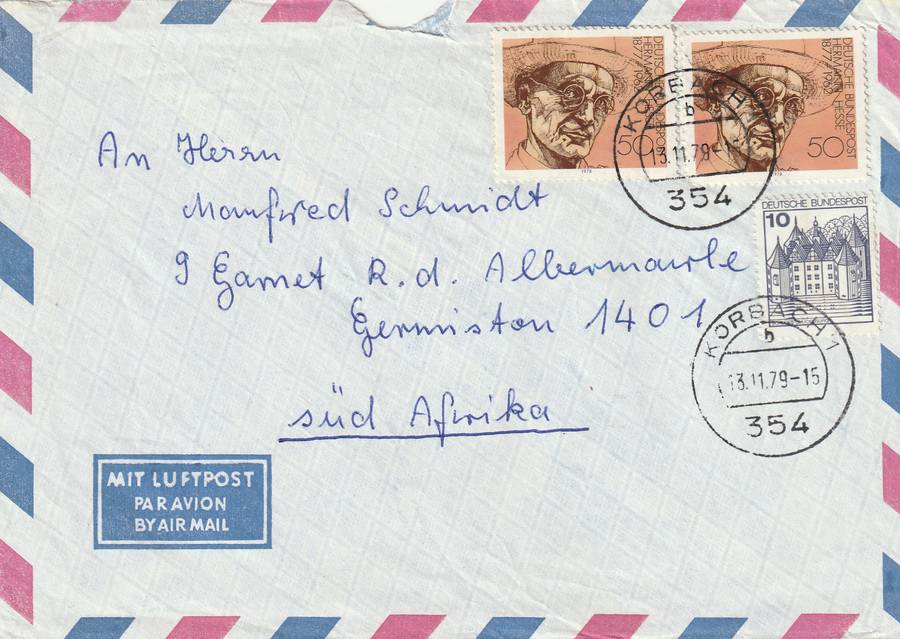 DEUTSCHE BUNDESPOST
HERMANN HESSE
1877/1962
50
1978
DEUTSCHE BUNDESPOST
HERMANN HESSE
1877/1962
50
KORBACH 1
b
13.11.79-15
354
DEUTSCHE BUNDESPOST
10
KORBACH 1
b
13.11.79-15
354
An Herrn
Manfred Schmidt
9 Garnet R.d. Albermarle
Germiston 1401
süd Afrika
MIT LUFTPOST
PAR AVION
BY AIR MAIL